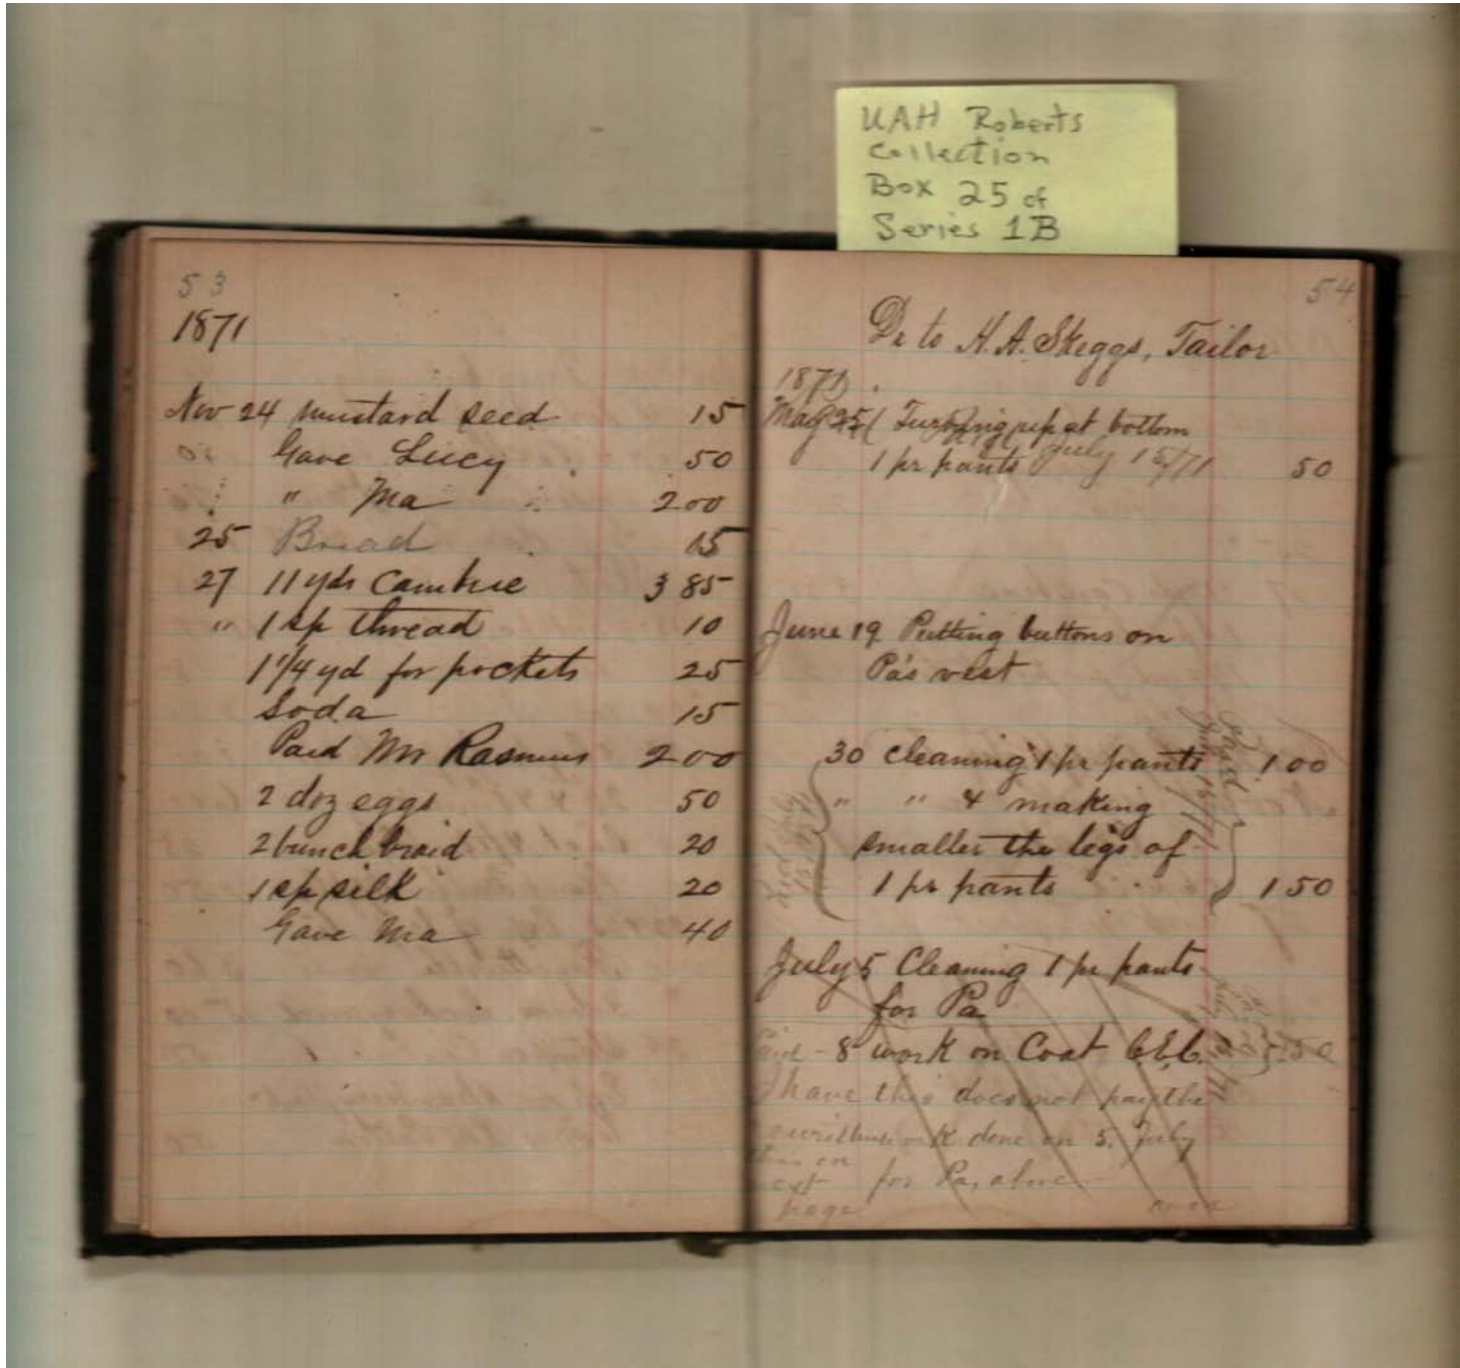 UAH Roberts
Collection
Box 25 of
Series 1B
53
1871
Nov 24 mustard seed 15
Gave Lucy 50
" Ma 2 00
25 Bread 15
27 11 yds Cambric 3 85
" 1 sp thread 10
1 1/4 yd for pockets 25
Soda 15
Paid Mr Rasmus 2 00
2 doz eggs 50
2 bunch braid 20
1 sp silk 20
Gave Ma 40
54
Dr to H. A. Skeggs, Tailor
1871
May 25 Turning up at bottom
1 pr pants July 15/71 50
June 19 Putting buttons on
Pa's vest
30 cleaning 1 pr pants 1 00
" " & making
smaller the legs of
1 pr pants 1 50
Paid
July 15/71
July 5 Cleaning 1 pr pants
for Pa
Paid - 8 work on Coat C.E.C. 5.50
have this does not pay the
work done on 5. July
this on
for Pa, above
page over